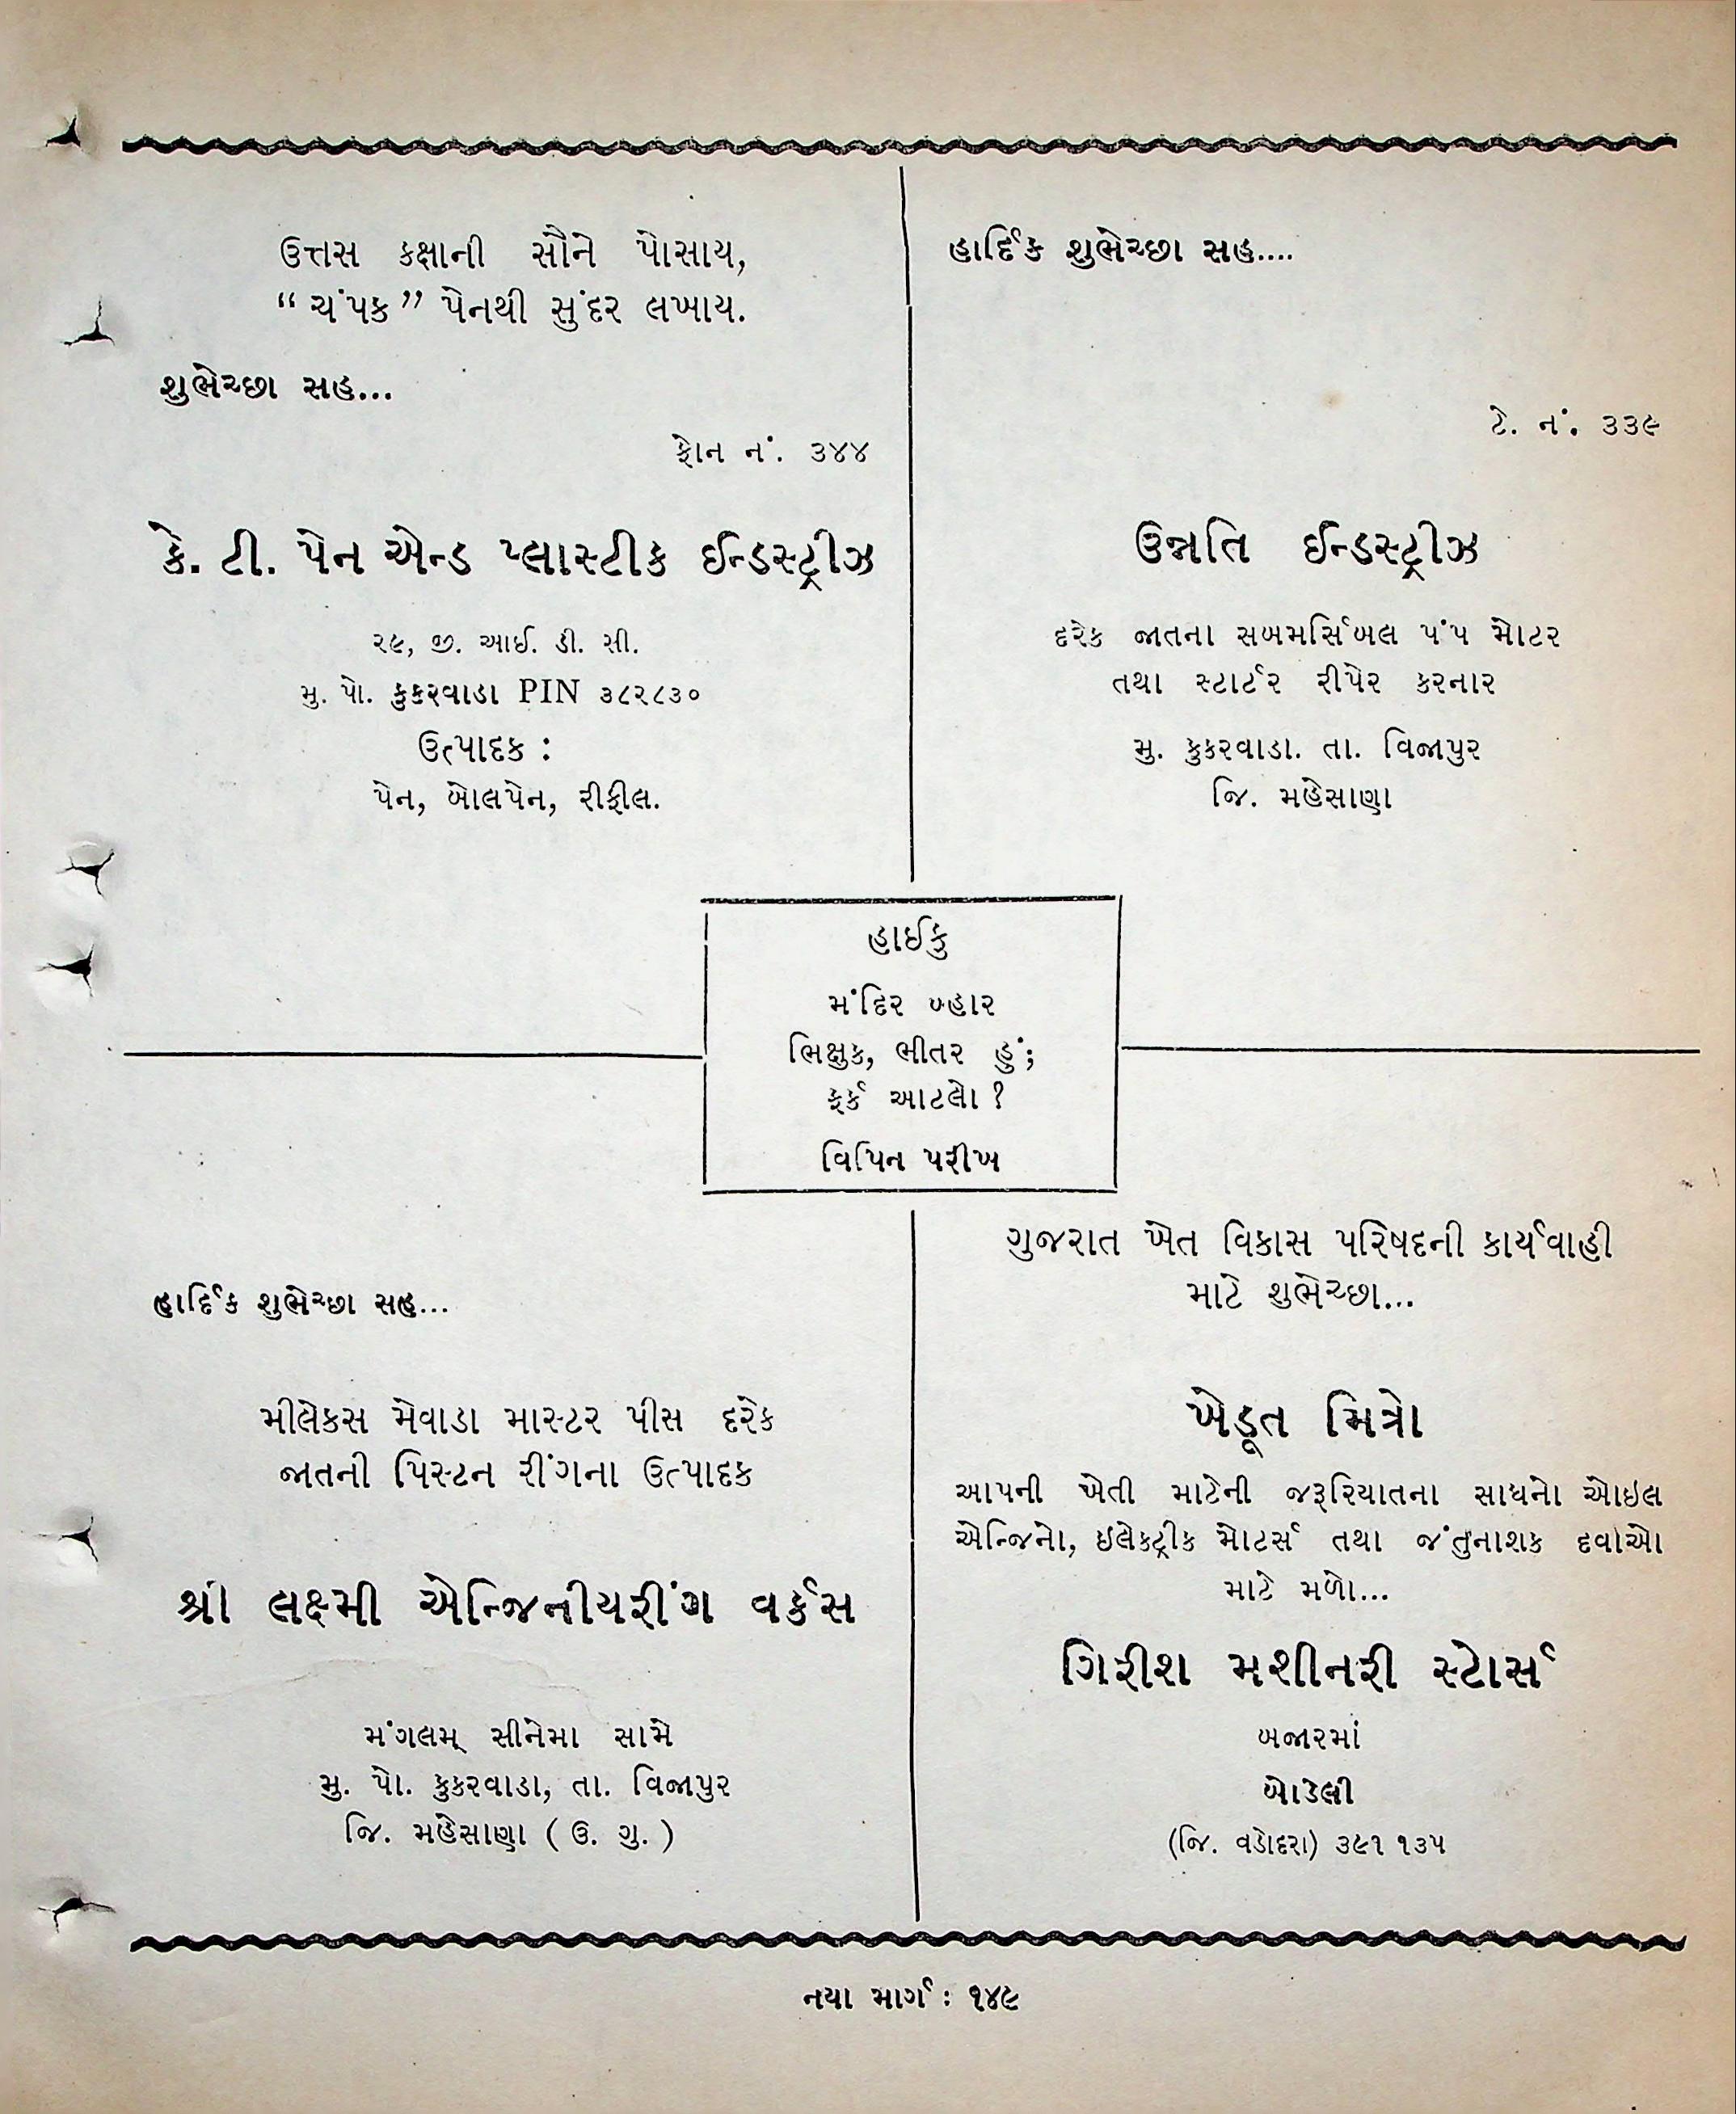 ઉત્તસ કક્ષાની સૌને પોસાય,
“ ચંપક ” પેનથી સુંદર લખાય.
શુભેચ્છા સહ...
ફોન નં. ૩૪૪
કે. ટી. પેન એન્ડ પ્લાસ્ટીક ઈન્ડસ્ટ્રીઝ
૨૯, જી. આઈ. ડી. સી.
મુ. પો. કુકરવાડા PIN ૩૮૨૮૩૦
ઉત્પાદક :
પેન, બોલપેન, રીફીલ.
હાર્દિક શુભેચ્છા સહ....
ટે. નં. ૩૩૯
ઉન્નતિ ઈન્ડસ્ટ્રીઝ
દરેક જાતના સબમર્સિબલ પંપ મોટર
તથા સ્ટાર્ટર રીપેર કરનાર
મુ. કુકરવાડા. તા. વિજાપુર
જિ. મહેસાણા
હાઈકુ
મંદિર બ્હાર
ભિક્ષુક, ભીતર હું;
ફર્ક આટલો ?
વિપિન પરીખ
હાર્દિક શુભેચ્છા સહ...
મીલેકસ મેવાડા માસ્ટર પીસ દરેક
જાતની પિસ્ટન રીંગના ઉત્પાદક
શ્રી લક્ષ્મી એન્જિનીયરીંગ વર્કસ
મંગલમ્ સીનેમા સામે
મુ. પો. કુકરવાડા, તા. વિજાપુર
જિ. મહેસાણા ( ઉ. ગુ. )
ગુજરાત ખેત વિકાસ પરિષદની કાર્યવાહી
માટે શુભેચ્છા...
ખેડૂત મિત્રો
આપની ખેતી માટેની જરૂરિયાતના સાધનો ઓઇલ
એન્જિનો, ઇલેક્ટ્રીક મોટર્સ તથા જંતુનાશક દવાઓ
માટે મળો...
ગિરીશ મશીનરી સ્ટોર્સ
બજારમાં
બોડેલી
(જિ. વડોદરા) ૩૯૧ ૧૩૫
નયા માર્ગ : ૧૪૯